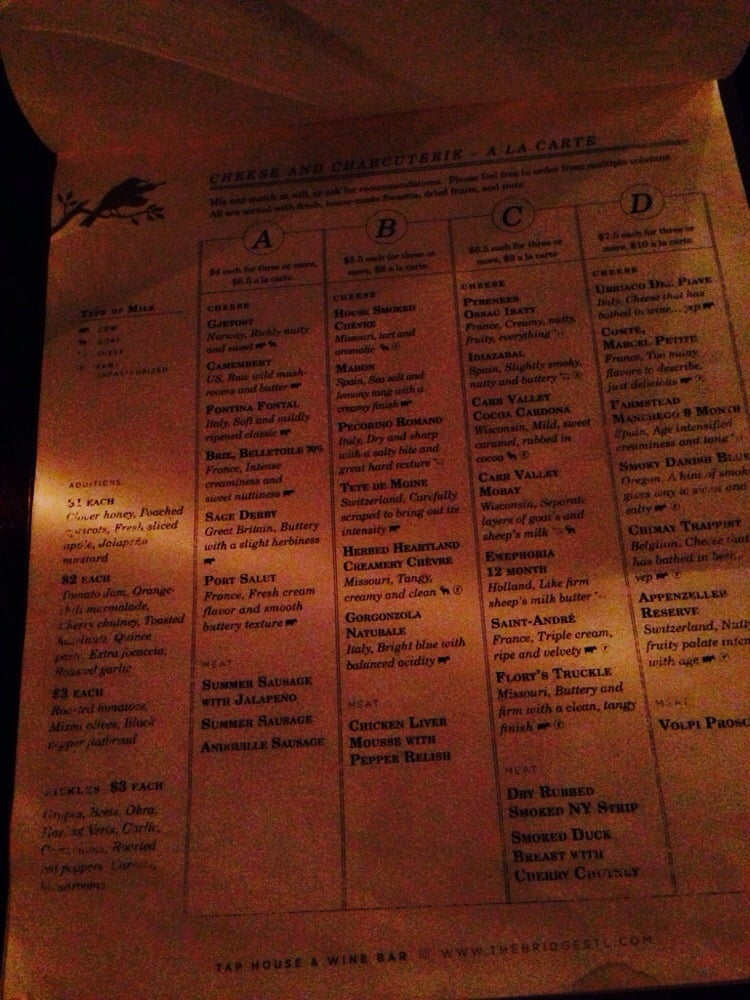 CHEESE AND CHARCUTERIE – A LA CARTE
Mix and match at will, or ask for recommendations. Please feel free to order from multiple columns
All are served with fresh, house-made focaccia, dried fruits, and nuts.
TYPE OF MILK
COW
GOAT
SHEEP
RAW/
UNPASTEURIZED
ADDITIONS
$1 EACH
Clover honey, Poached
apricots, Fresh sliced
apple, Jalapeño
mustard
$2 EACH
Tomato jam, Orange-
chili marmalade,
Cherry chutney, Toasted
hazelnuts, Quince
paste, Extra focaccia,
Roasted garlic
$3 EACH
Roasted tomatoes,
Mixed olives, Black
pepper flatbread
PICKLES $3 EACH
Grapes, Beets, Okra,
Haricot Verts, Garlic,
Roasted
red peppers, Carrots,
Mushrooms
A
$4 each for three or more,
$6.5 a la carte
CHEESE
GJETOST
Norway, Richly nutty
and sweet
CAMEMBERT
US, Raw wild mush-
rooms and butter
FONTINA FONTAL
Italy, Soft and mildly
ripened classic
BRIE, BELLETOILE 70%
France, Intense
creaminess and
sweet nuttiness
SAGE DERBY
Great Britain, Buttery
with a slight herbiness
PORT SALUT
France, Fresh cream
flavor and smooth
buttery texture
MEAT
SUMMER SAUSAGE
WITH JALAPEÑO
SUMMER SAUSAGE
ANDOUILLE SAUSAGE
B
$5.5 each for three or
more, $8 a la carte
CHEESE
HOUSE SMOKED
CHÈVRE
Missouri, tart and
aromatic
MAHON
Spain, Sea salt and
lemony tang with a
creamy finish
PECORINO ROMANO
Italy, Dry and sharp
with a salty bite and
great hard texture
TETE DE MOINE
Switzerland, Carefully
scraped to bring out its
intensity
HERBED HEARTLAND
CREAMERY CHÈVRE
Missouri, Tangy,
creamy and clean
GORGONZOLA
NATURALE
Italy, Bright blue with
balanced acidity
MEAT
CHICKEN LIVER
MOUSSE WITH
PEPPER RELISH
C
$6.5 each for three or
more, $9 a la carte
CHEESE
PYRENEES
OSSAU IRATY
France, Creamy, nutty,
fruity, everything
IDIAZABAL
Spain, Slightly smoky,
nutty and buttery
CARR VALLEY
COCOA CARDONA
Wisconsin, Mild, sweet
caramel, rubbed in
cocoa
CARR VALLEY
MOBAY
Wisconsin, Separate
layers of goat's and
sheep's milk
EWEPHORIA
12 MONTH
Holland, Like firm
sheep's milk butter
SAINT-ANDRÉ
France, Triple cream,
ripe and velvety
FLORY'S TRUCKLE
Missouri, Buttery and
firm with a clean, tangy
finish
MEAT
DRY RUBBED
SMOKED NY STRIP
SMOKED DUCK
BREAST WITH
CHERRY CHUTNEY
D
$7.5 each for three or
more, $10 a la carte
CHEESE
UBRIACO DEL PIAVE
Italy, Cheese that has
bathed in wine... yep
COMTÉ,
MARCEL PETITE
France, Too many
flavors to describe,
just delicious
FARMSTEAD
MANCHEGO 9 MONTH
Spain, Age intensified
creaminess and tang
SMOKY DANISH BLUE
Oregon, A hint of smoke
gives way to sweet and
salty
CHIMAY TRAPPIST
Belgium, Cheese that
has bathed in beer...
yep
APPENZELLER
RESERVE
Switzerland, Nutty
fruity palate
with age
MEAT
VOLPI
TAP HOUSE & WINE BAR WWW.THEBRIDGESTL.COM